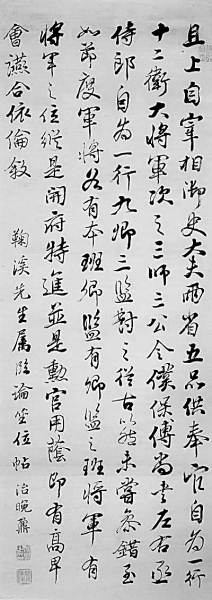 且上自宰相御史大夫兩省五品供奉官自為一行
十二衛大將軍次之三師三公令僕保傅尚書左右丞
侍郎自為一行九卿三監對之從古以然未嘗參錯至
如節度軍將各有本班卿監有卿監之班將軍有
將軍之位縱是開府特進並是勳官用蔭即有高卑
會讌合依倫敘
鞠溪先生屬臨論坐位帖 治晚鼐